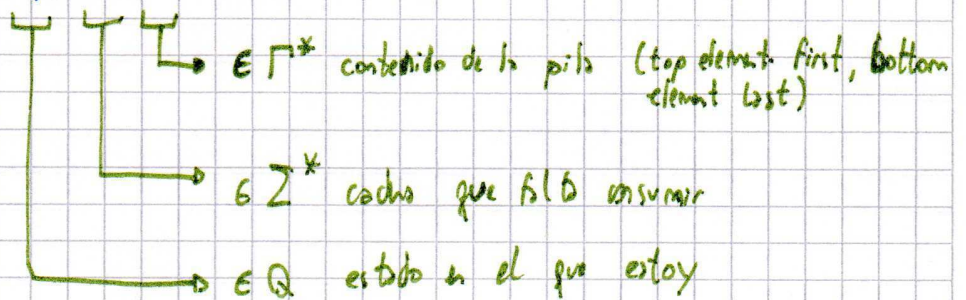 ∈ Γ* contenido de la pila (top element first, bottom
element last)
∈ Σ* cacho que falta consumir
∈ Q estado en el que estoy